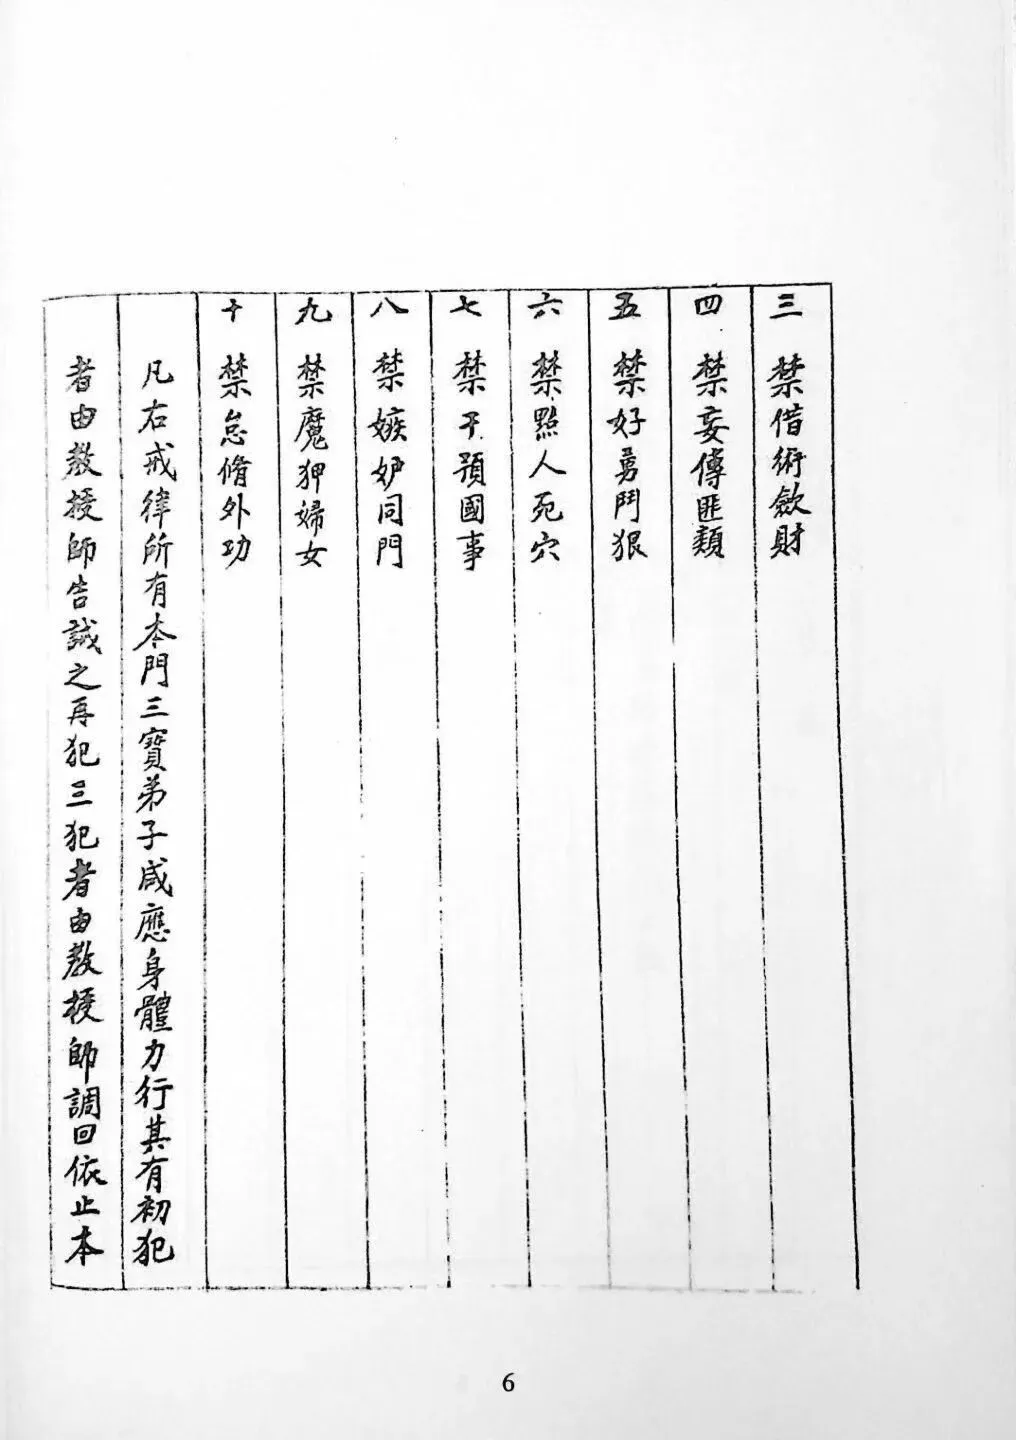 三 禁借術歛財
四 禁妄傳匪類
五 禁好勇鬥狠
六 禁點人死穴
七 禁干預國事
八 禁嫉妒同門
九 禁魔狎婦女
十 禁怠脩外功
凡右戒律所有本門三寶弟子咸應身體力行其有初犯
者由教授師告誡之再犯三犯者由教授師調回依止本
6